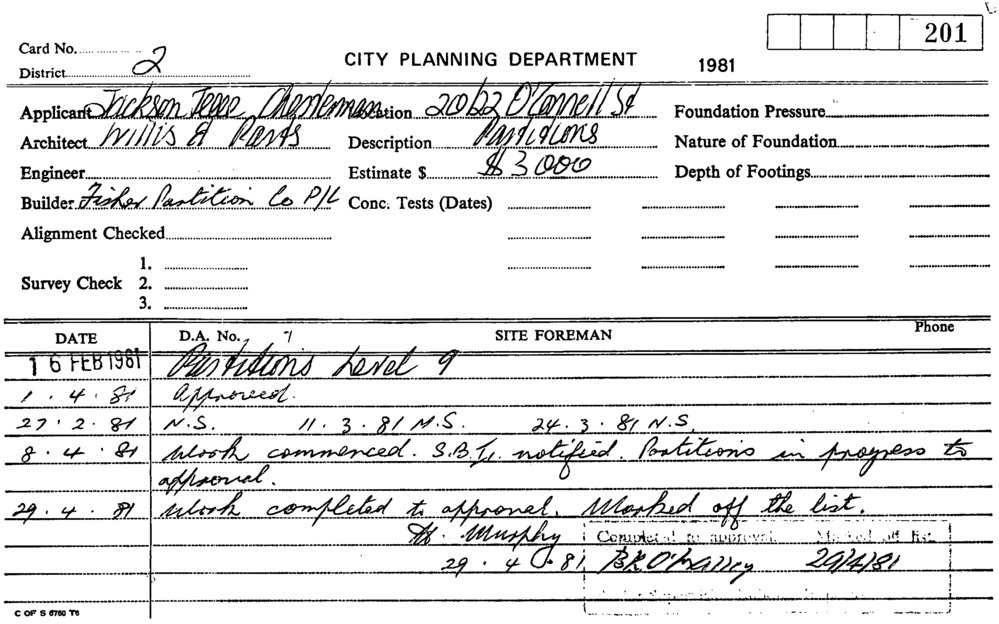 201
Card No.
District 2
CITY PLANNING DEPARTMENT 1981
Applicant Jackson Teece Chesterman Location 20/22 O'Connell St Foundation Pressure
Architect Willis & Parts Description Partitions Nature of Foundation
Engineer Estimate $ $3000 Depth of Footings
Builder Fisher Partition Co P/L Conc. Tests (Dates)
Alignment Checked
1.
Survey Check 2.
3.
DATE D.A. No. SITE FOREMAN Phone
16 FEB 1981 Partitions Level 9
1.4.81 Approved.
27.2.81 N.S. 11.3.81 N.S. 24.3.81 N.S.
8.4.81 Work commenced. S.B.I. notified. Partitions in progress to
approval.
29.4.81 Work completed to approval. Marked off the list.
Murphy Completed to approval. Marked off list
29.4.81 B.R. O'Malley 29/4/81
C OF S 6760 T6